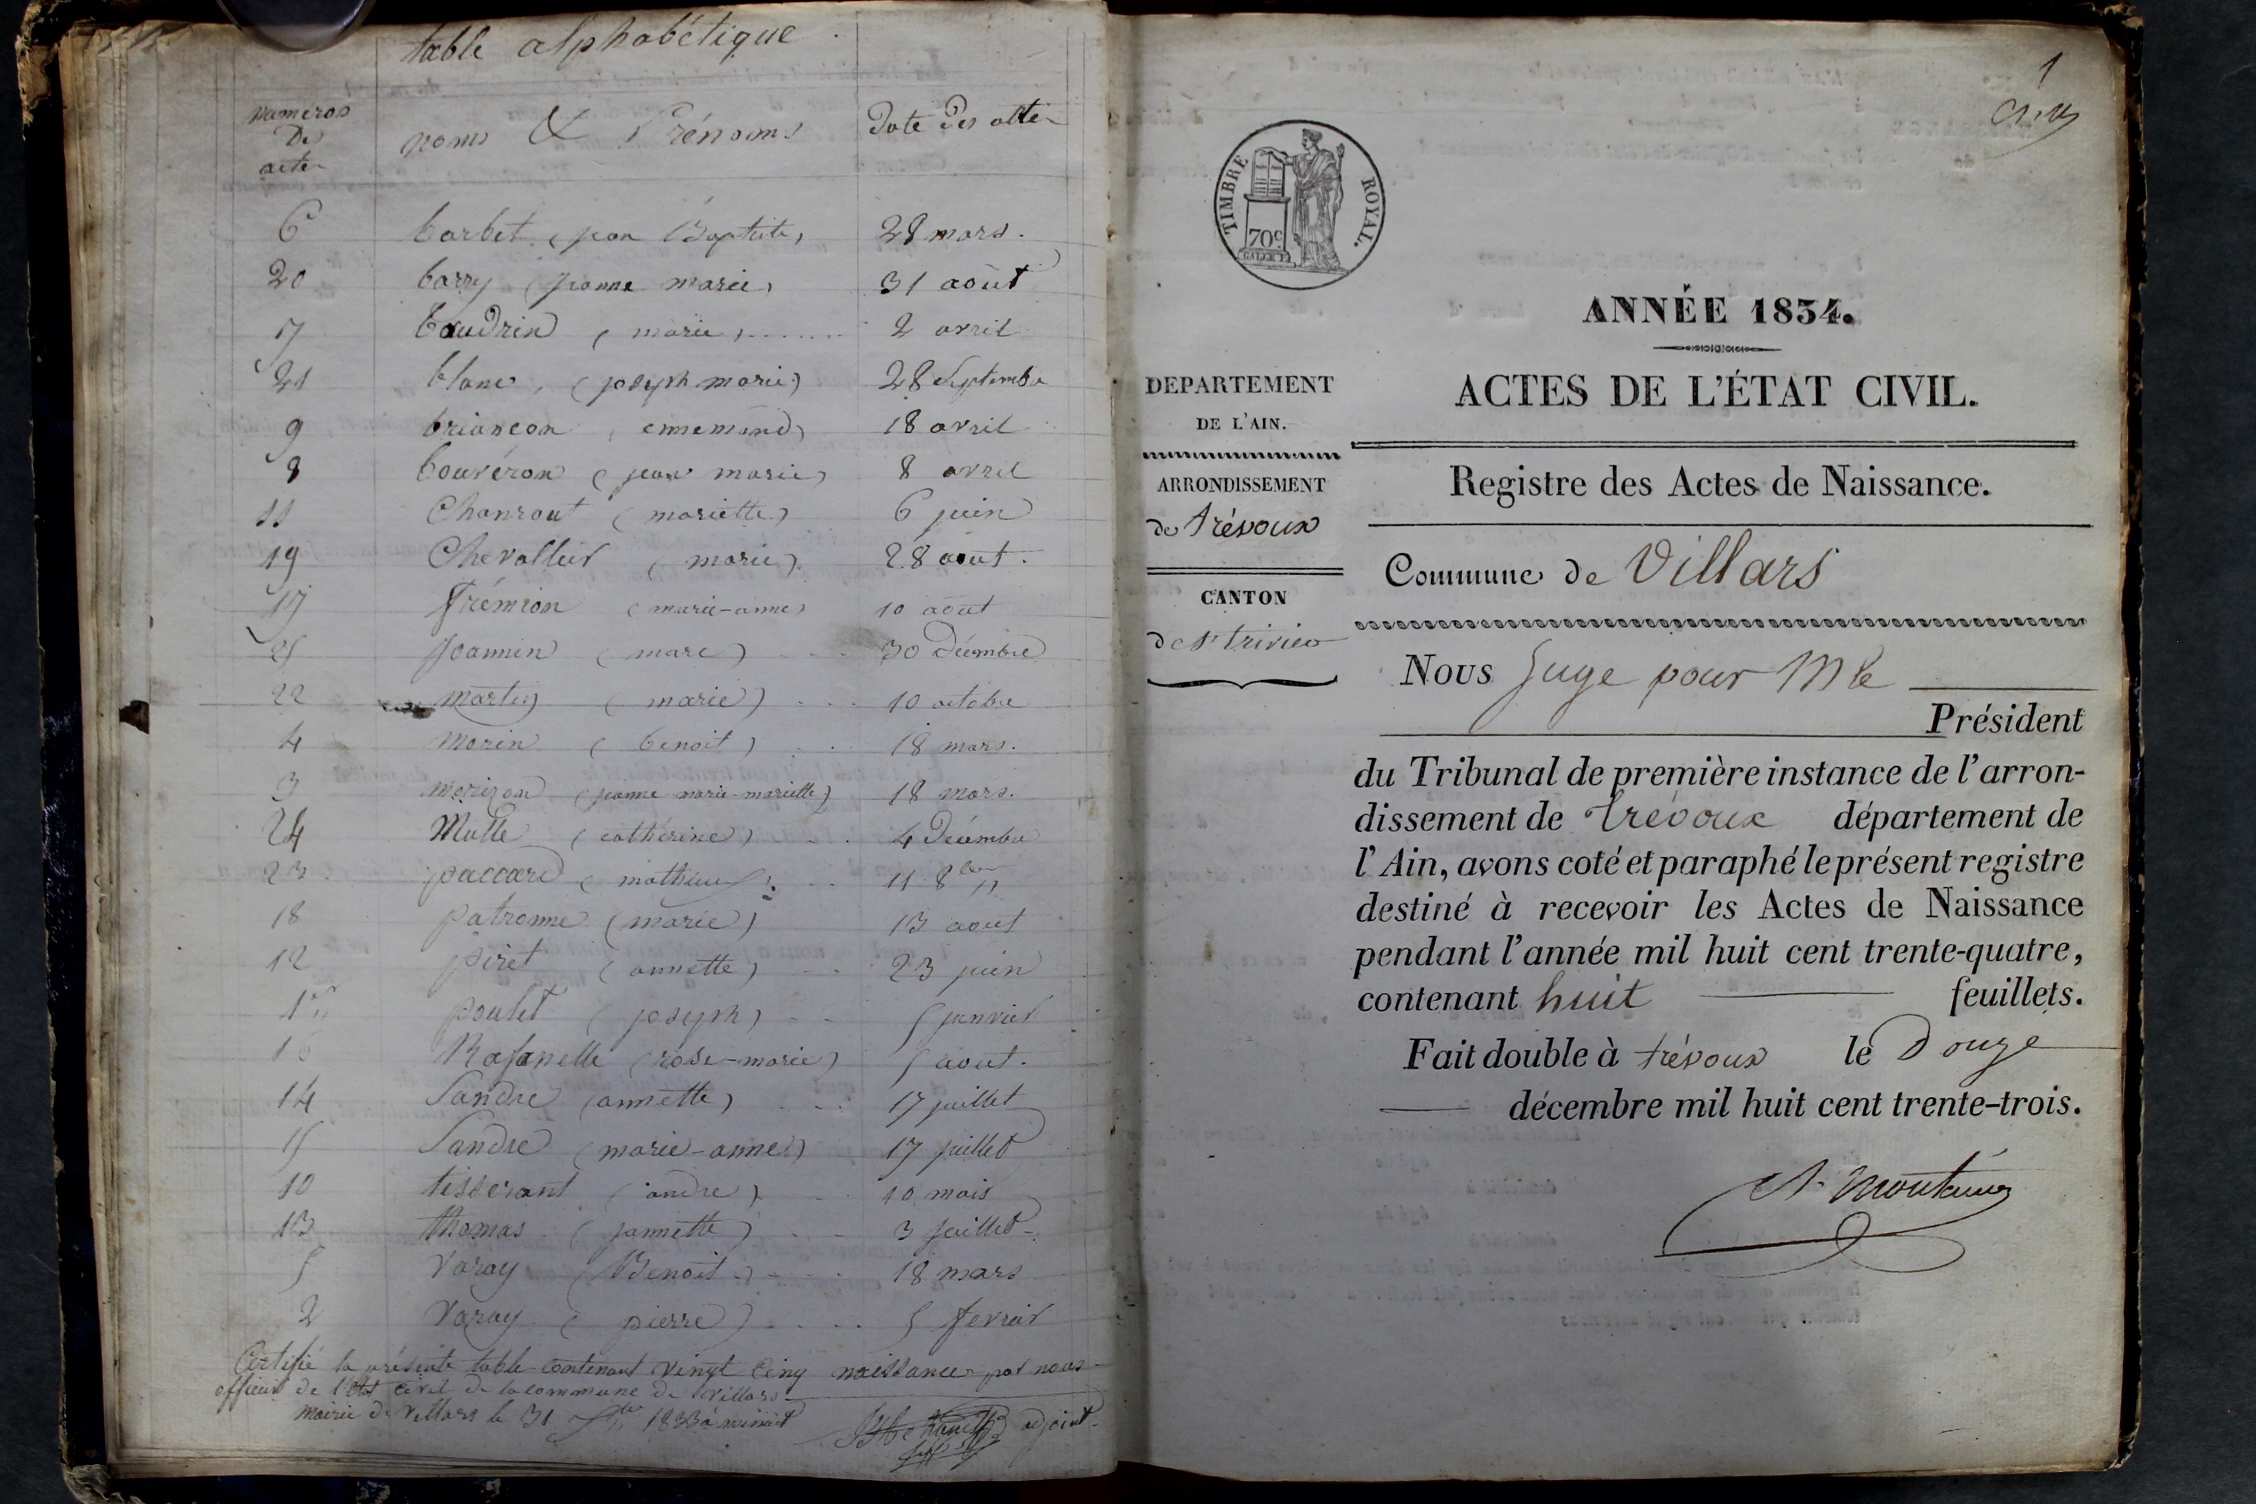 table alphabétique
numeros
Des
actes
noms & Prénoms
Date Des actes
6 barbet (jean Baptiste) 28 mars.
20 barry (jeanne marie) 31 août
7 baudrin (marie) ...... 2 avril
21 blanc, (joseph marie) 28 Septembre
9 briançon (ennemond) 18 avril
8 bouvéron (jean marie) 8 avril
11 Chanrout (mariette) 6 juin
19 Chevallier (marie) 28 aout.
17 frémion (marie-anne) 10 aout
25 joannin (marc) ... 30 Décembre
22 martin (marie) ... 10 octobre
4 morin (benoit) ... 18 mars.
3 (jeanne marie-mariette) 18 mars.
24 Mutte (catherine) .. 4 Décembre
23 paccard (mathieu) ... 11 8bre
18 patronne (marie) 13 aout
12 piret (annette) ... 23 juin
1er poulet (joseph) .. 5 janvier
16 Rafanelle (rose-marie) 5 aout.
14 Sandre (annette) ... 17 juillet
15 Sandre (marie-anne) 17 juillet
10 tisserant (andre) .. 10 mais
13 thomas (jannette) .. 3 juillet
5 Varay (Benoit) ... 18 mars
2 Varay (pierre) .... 5 fevrier
Certifié la présente table contenant vingt cinq naissances par nous
officier de l'état civil de la commune de villars
mairie de villars le 31 Xbre 1833 à minuit
adjoint
1
TIMBRE ROYAL.
70c
ANNÉE 1834.
ACTES DE L'ÉTAT CIVIL.
DEPARTEMENT
DE L'AIN.
ARRONDISSEMENT
de trévoux
CANTON
de st trivier
Registre des Actes de Naissance.
Commune de Villars
Nous Juge pour Mr le
Président
du Tribunal de première instance de l'arron-
dissement de trévoux département de
l'Ain, avons coté et paraphé le présent registre
destiné à recevoir les Actes de Naissance
pendant l'année mil huit cent trente-quatre,
contenant huit feuillets.
Fait double à trévoux le Douze
décembre mil huit cent trente-trois.